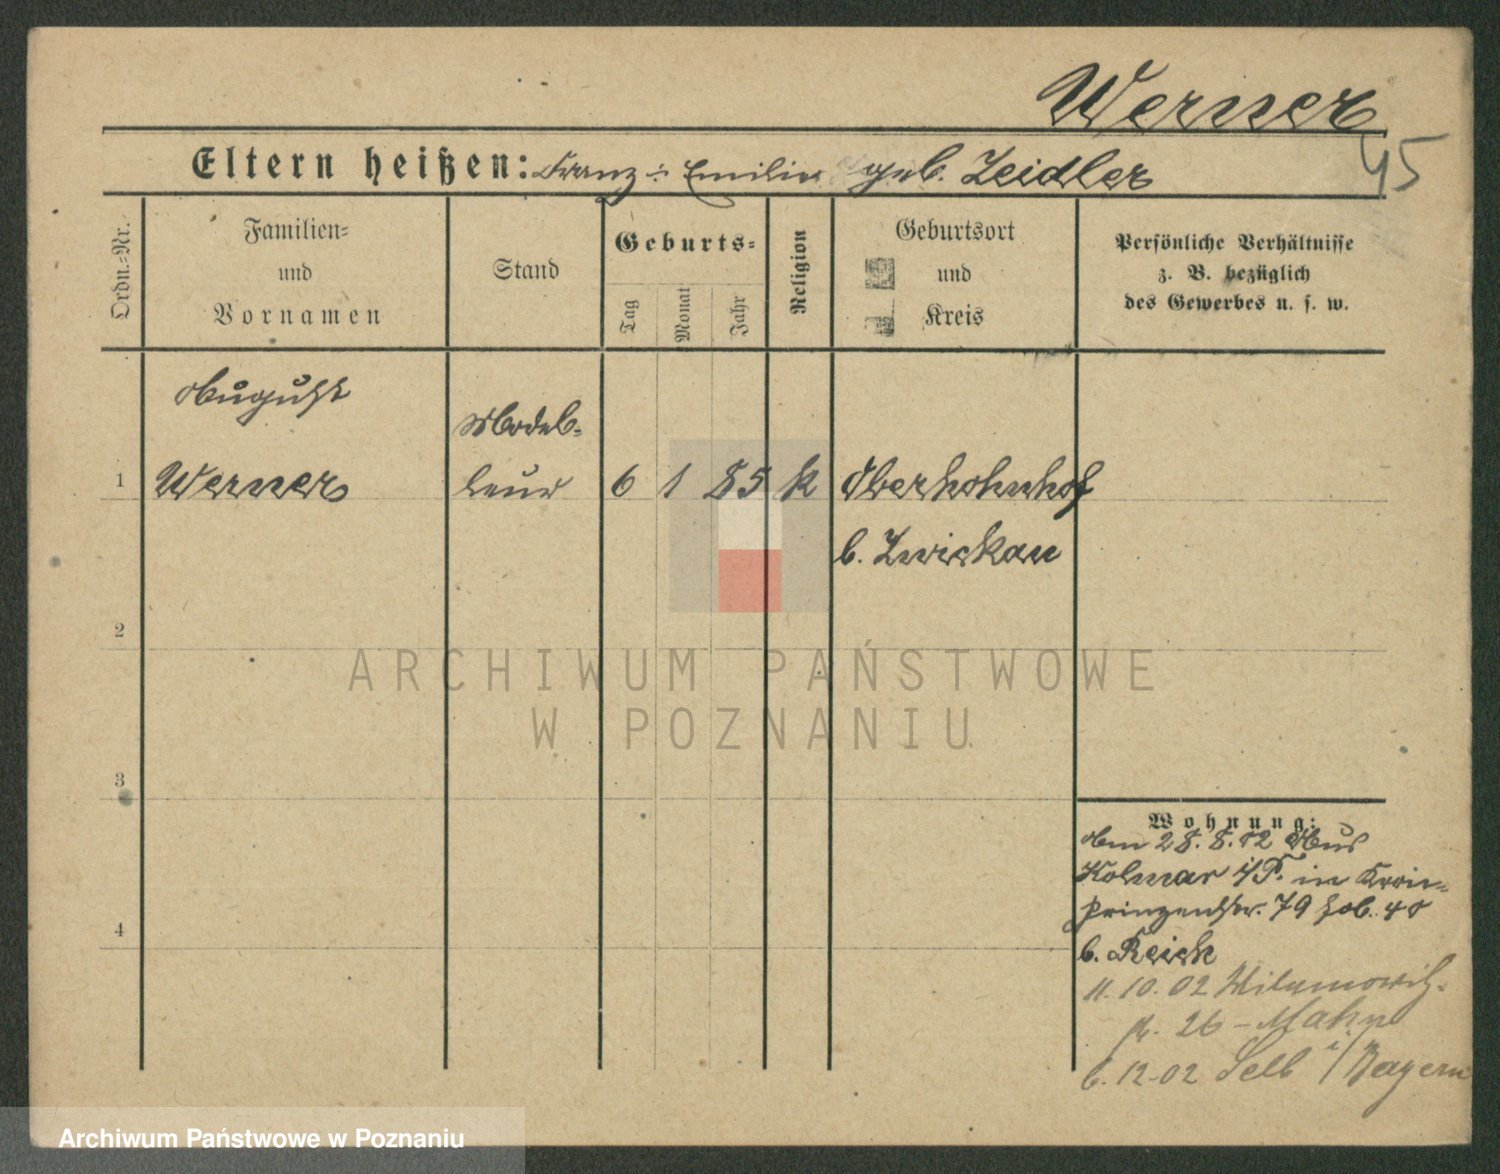 Werner
45
Eltern heißen: Franz : Emilie geb. Zeidler
Ordn.-Nr.
Familien-
und
Vornamen
Stand
Geburts-
Tag
Monat
Jahr
Religion
Geburtsort
und
Kreis
Persönliche Verhältnisse
z. B. bezüglich
des Gewerbes u. s. w.
August
Model-
1 Werner leur 6 1 85 k Oberhohnhof
b. Zwickau
2
3
4
Wohnung:
Am 28. 8. 02 Aus
Kolmar i/P. in Kron-
prinzenstr. 79
b. Reich
11. 10. 02
26 -
6. 12-02 Selb i/Bayern
ARCHIWUM PAŃSTWOWE
W POZNANIU
Archiwum Państwowe w Poznaniu